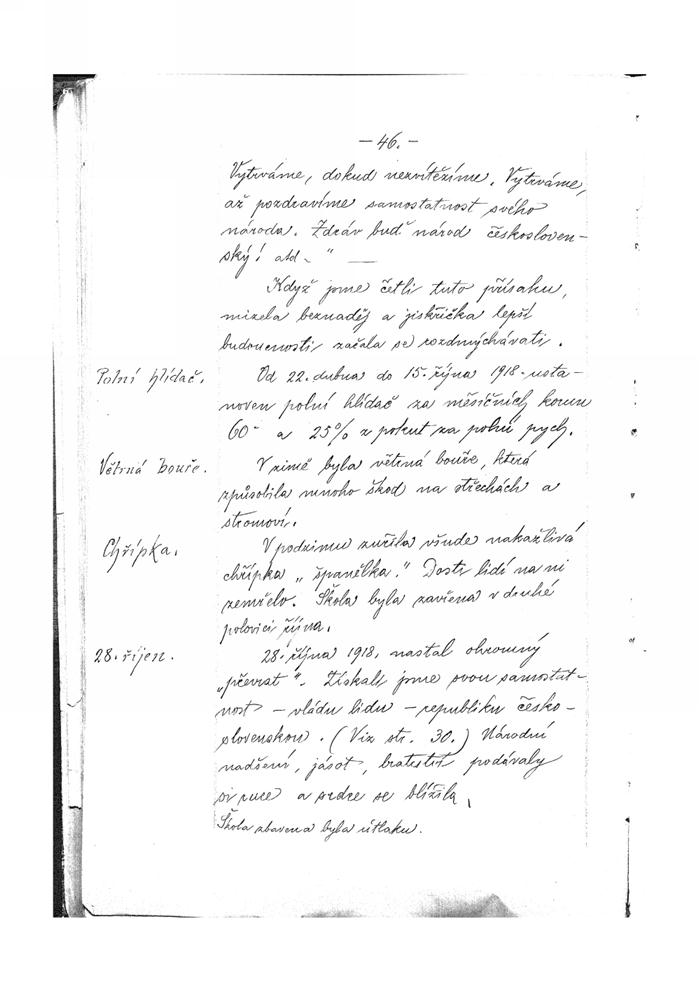 — 46. —
Vytrváme, dokud nezvítězíme. Vytrváme,
až pozdravíme samostatnost svého
národa. Zdráv buď národ českosloven-
ský! atd. " —
Když jsme četli tuto přísahu,
mizela beznaděj a jiskřička lepší
budoucnosti začala se rozdmýchávati.
Polní hlídač.
Od 22. dubna do 15. října 1918 usta-
noven polní hlídač za měsíčních korun
60- a 25% z pokut za polní pych.
Větrná bouře.
V zimě byla větrná bouře, která
způsobila mnoho škod na střechách a
stromoví.
Chřipka.
V podzimu zuřila všude nakažlivá
chřipka „španělka." Dosti lidí na ni
zemřelo. Škola byla zavřena v druhé
polovici října.
28. říjen.
28. října 1918. nastal ohromný
„převrat". Získali jsme svou samostat-
nost — vládu lidu — republiku česko-
slovenskou. (Viz str. 30.) Národní
nadšení, jásot, bratrství podávaly
si ruce a srdce se blížila,
Škola zbavena byla útlaku.